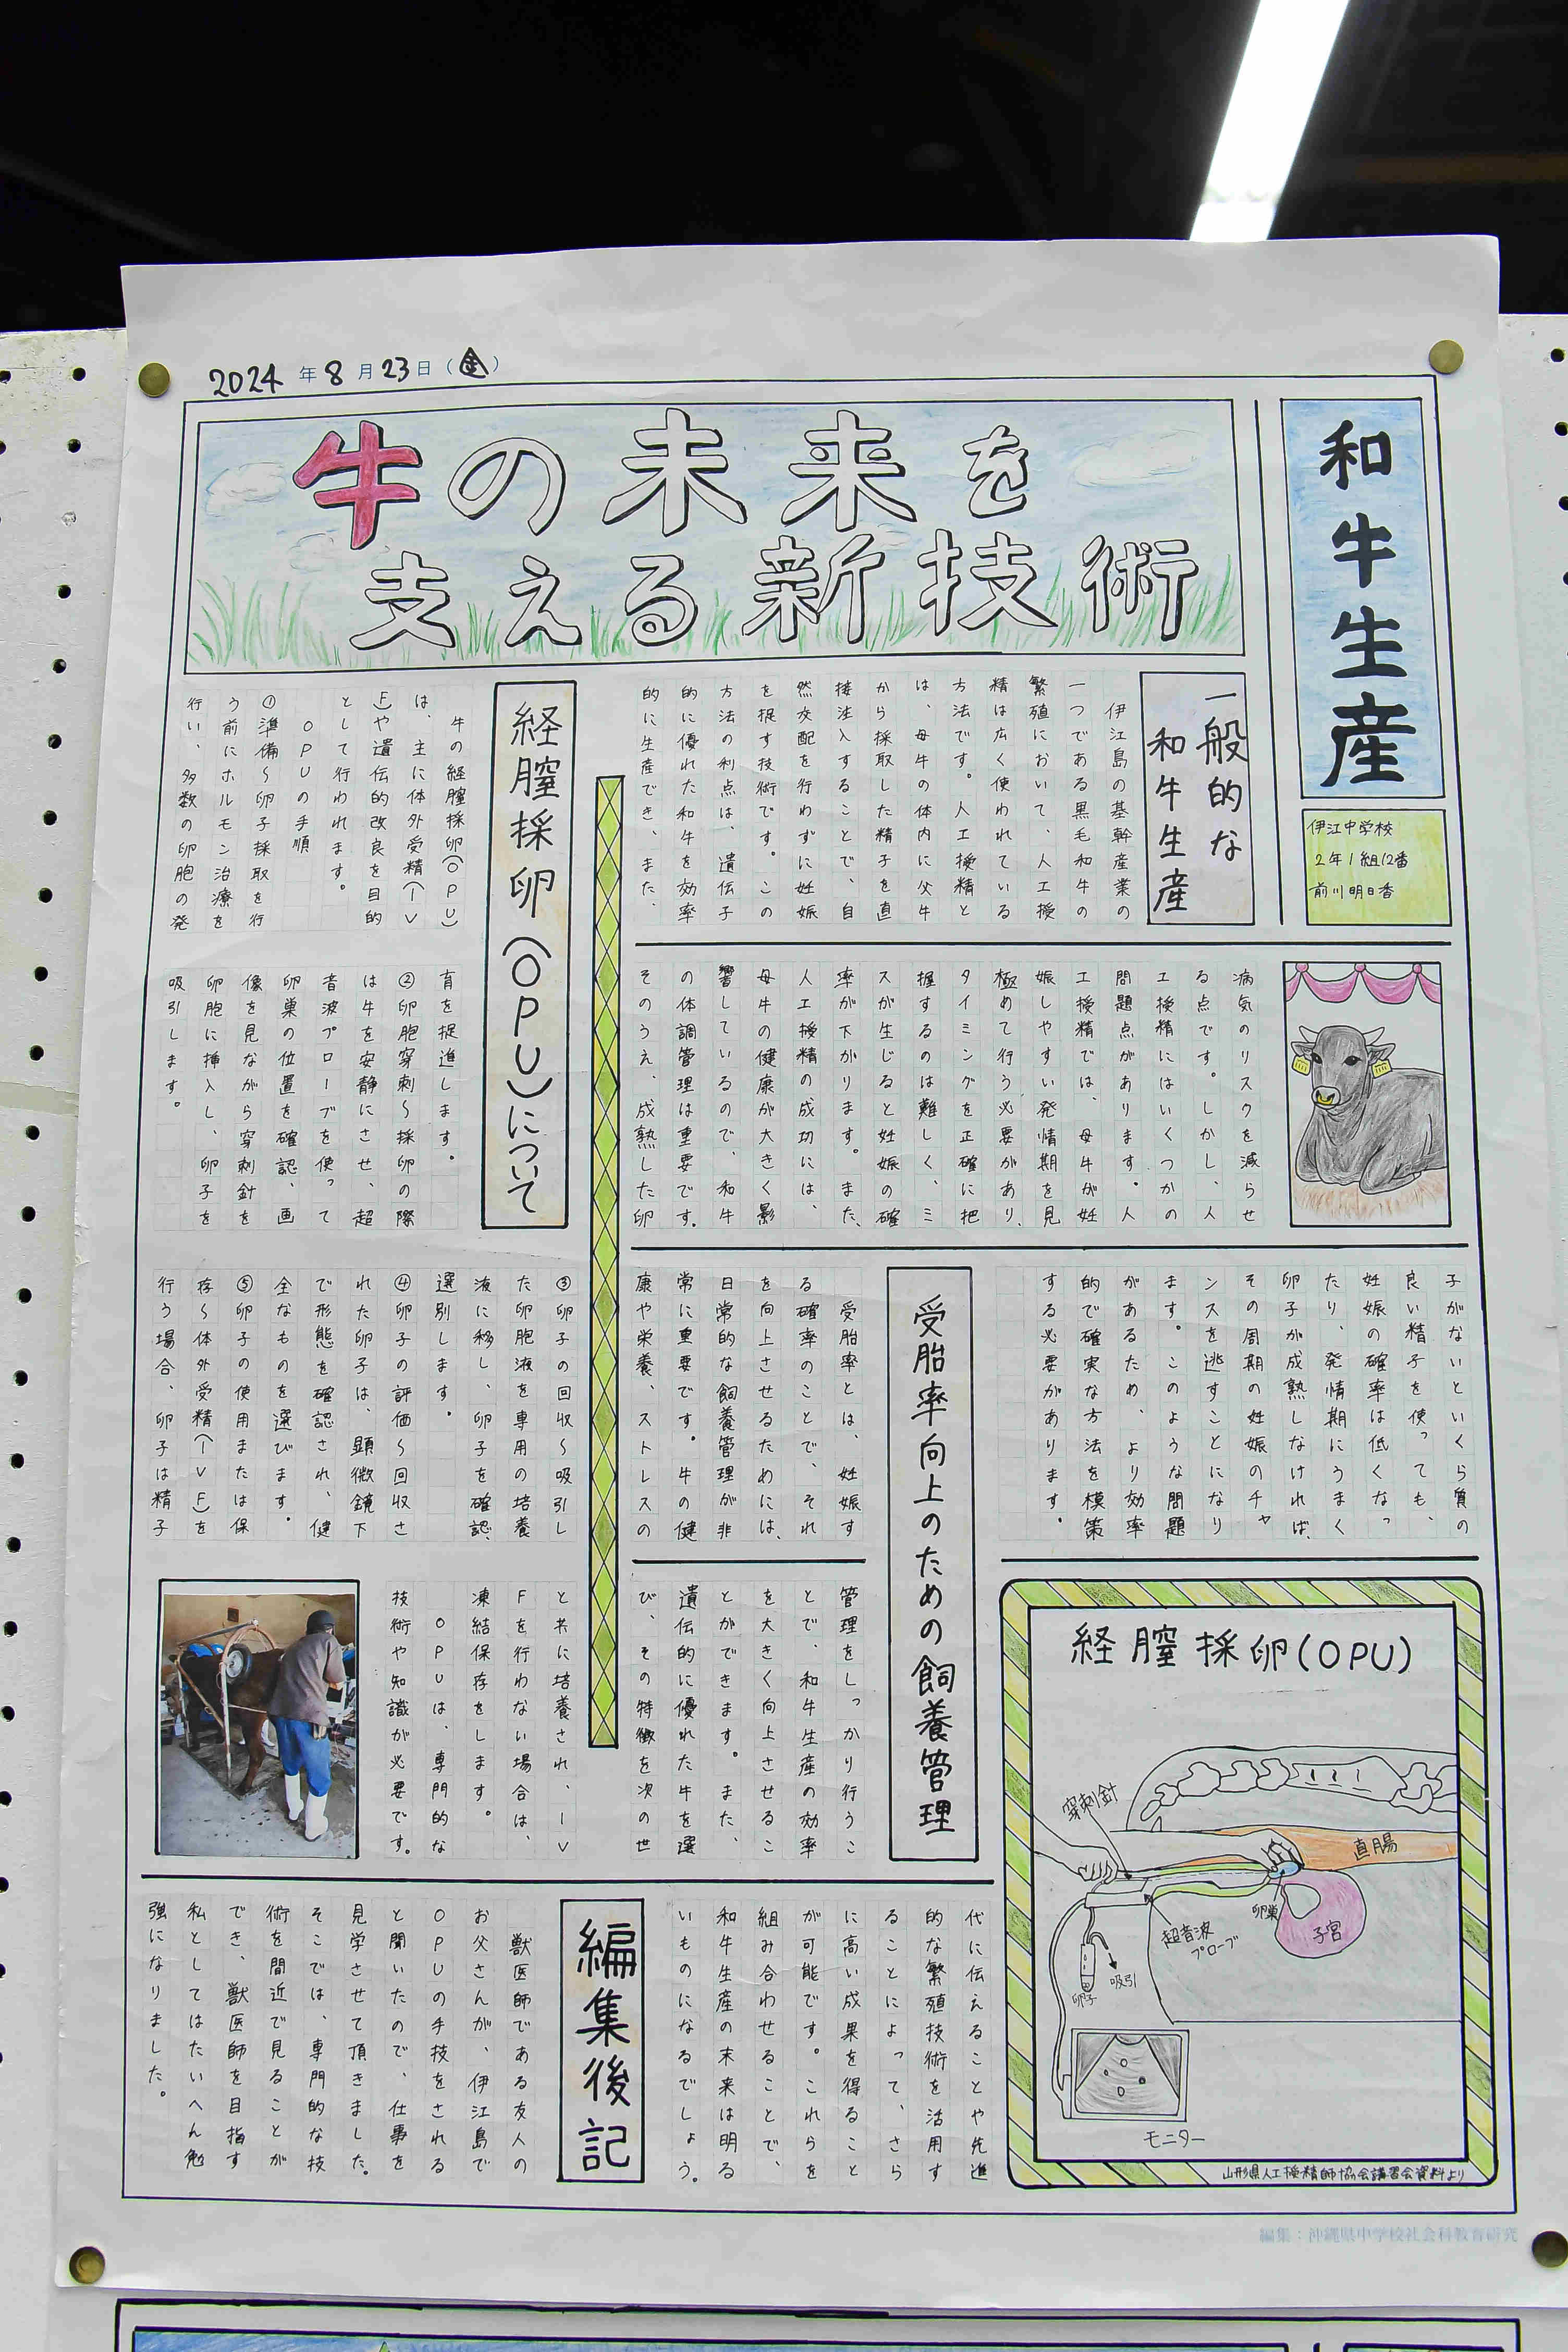 2024年8月23日（金）
牛の未来を
支える新技術
和牛生産
伊江中学校
2年1組12番
前川明日香
一般的な
和牛生産
伊江島の基幹産業の
一つである黒毛和牛の
繁殖において、人工授
精は広く使われている
方法です。人工授精と
は、母牛の体内に父牛
から採取した精子を直
接注入することで、自
然交配を行わずに妊娠
を捉す技術です。この
方法の利点は、遺伝子
的に優れた和牛を効率
的に生産でき、また、
病気のリスクを減らせ
る点です。しかし、人
工授精にはいくつかの
問題点があります。人
工授精では、母牛が妊
娠しやすい発情期を見
極めて行う必要があり、
タイミングを正確に把
握するのは難しく、ミ
スが生じると妊娠の確
率が下がります。また、
人工授精の成功には、
母牛の健康が大きく影
響しているので、和牛
の体調管理は重要です。
そのうえ、成熟した卵
子がないといくら質の
良い精子を使っても、
妊娠の確率は低くなっ
たり、発情期にうまく
卵子が成熟しなければ、
その周期の妊娠のチャ
ンスを逃すことになり
ます。このような問題
があるため、より効率
的で確実な方法を模策
する必要があります。
受胎率向上のための飼養管理
受胎率とは、妊娠す
る確率のことで、それ
を向上させるためには、
日常的な飼養管理が非
常に重要です。牛の健
康や栄養、ストレスの
管理をしっかり行うこ
とで、和牛生産の効率
を大きく向上させるこ
とができます。また、
遺伝的に優れた牛を選
び、その特徴を次の世
代に伝えることや先進
的な繁殖技術を活用す
ることによって、さら
に高い成果を得ること
が可能です。これらを
組み合わせることで、
和牛生産の未来は明る
いものになるでしょう。
経膣採卵（OPU）について
牛の経膣採卵（OPU）
は、主に体外受精（IV
F）や遺伝的改良を目的
として行われます。
OPUの手順
①準備～卵子採取を行
う前にホルモン治療を
行い、多数の卵胞の発
育を捉進します。
②卵胞穿刺～採卵の際
は牛を安静にさせ、超
音波プローブを使って
卵巣の位置を確認、画
像を見ながら穿刺針を
卵胞に挿入し、卵子を
吸引します。
③卵子の回収～吸引し
た卵胞液を専用の培養
液に移し、卵子を確認
選別します。
④卵子の評価～回収さ
れた卵子は、顕微鏡下
で形態を確認され、健
全なものを選びます。
⑤卵子の使用または保
存～体外受精（IVF）を
行う場合、卵子は精子
と共に培養され、IV
Fを行わない場合は、
凍結保存をします。
OPUは、専門的な
技術や知識が必要です。
経膣採卵（OPU）
穿刺針
直腸
卵巣
子宮
超音波
プローブ
吸引
卵子
モニター
山形県人工授精師協会講習会資料より
編集後記
獣医師である友人の
お父さんが、伊江島で
OPUの手技をされる
と聞いたので、仕事を
見学させて頂きました。
そこでは、専門的な技
術を間近で見ることが
でき、獣医師を目指す
私としてはたいへん勉
強になりました。
編集：沖縄県中学校社会科教育研究